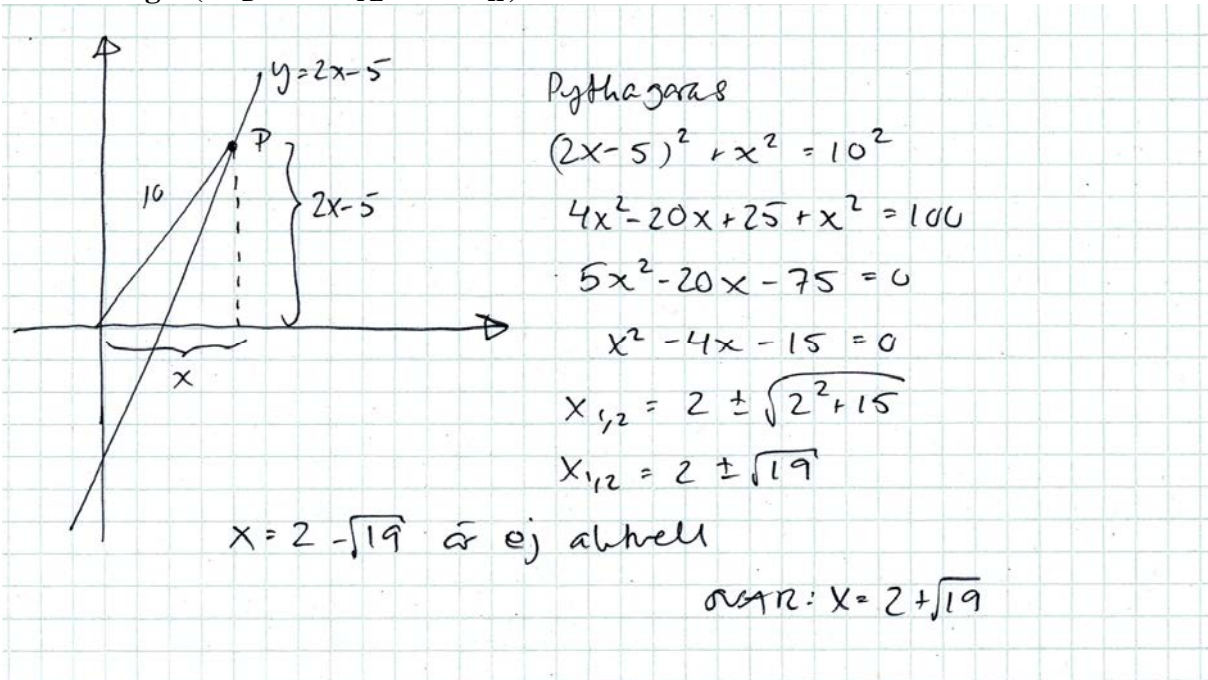 y=2x-5
P
10
2x-5
x
Pythagoras
(2x-5)² + x² = 10²
4x²-20x+25+x² = 100
5x²-20x-75 = 0
x²-4x-15 = 0
x₁,₂ = 2 ± √(2²+15)
x₁,₂ = 2 ± √19
x = 2-√19 är ej aktuell
SVAR: x = 2+√19